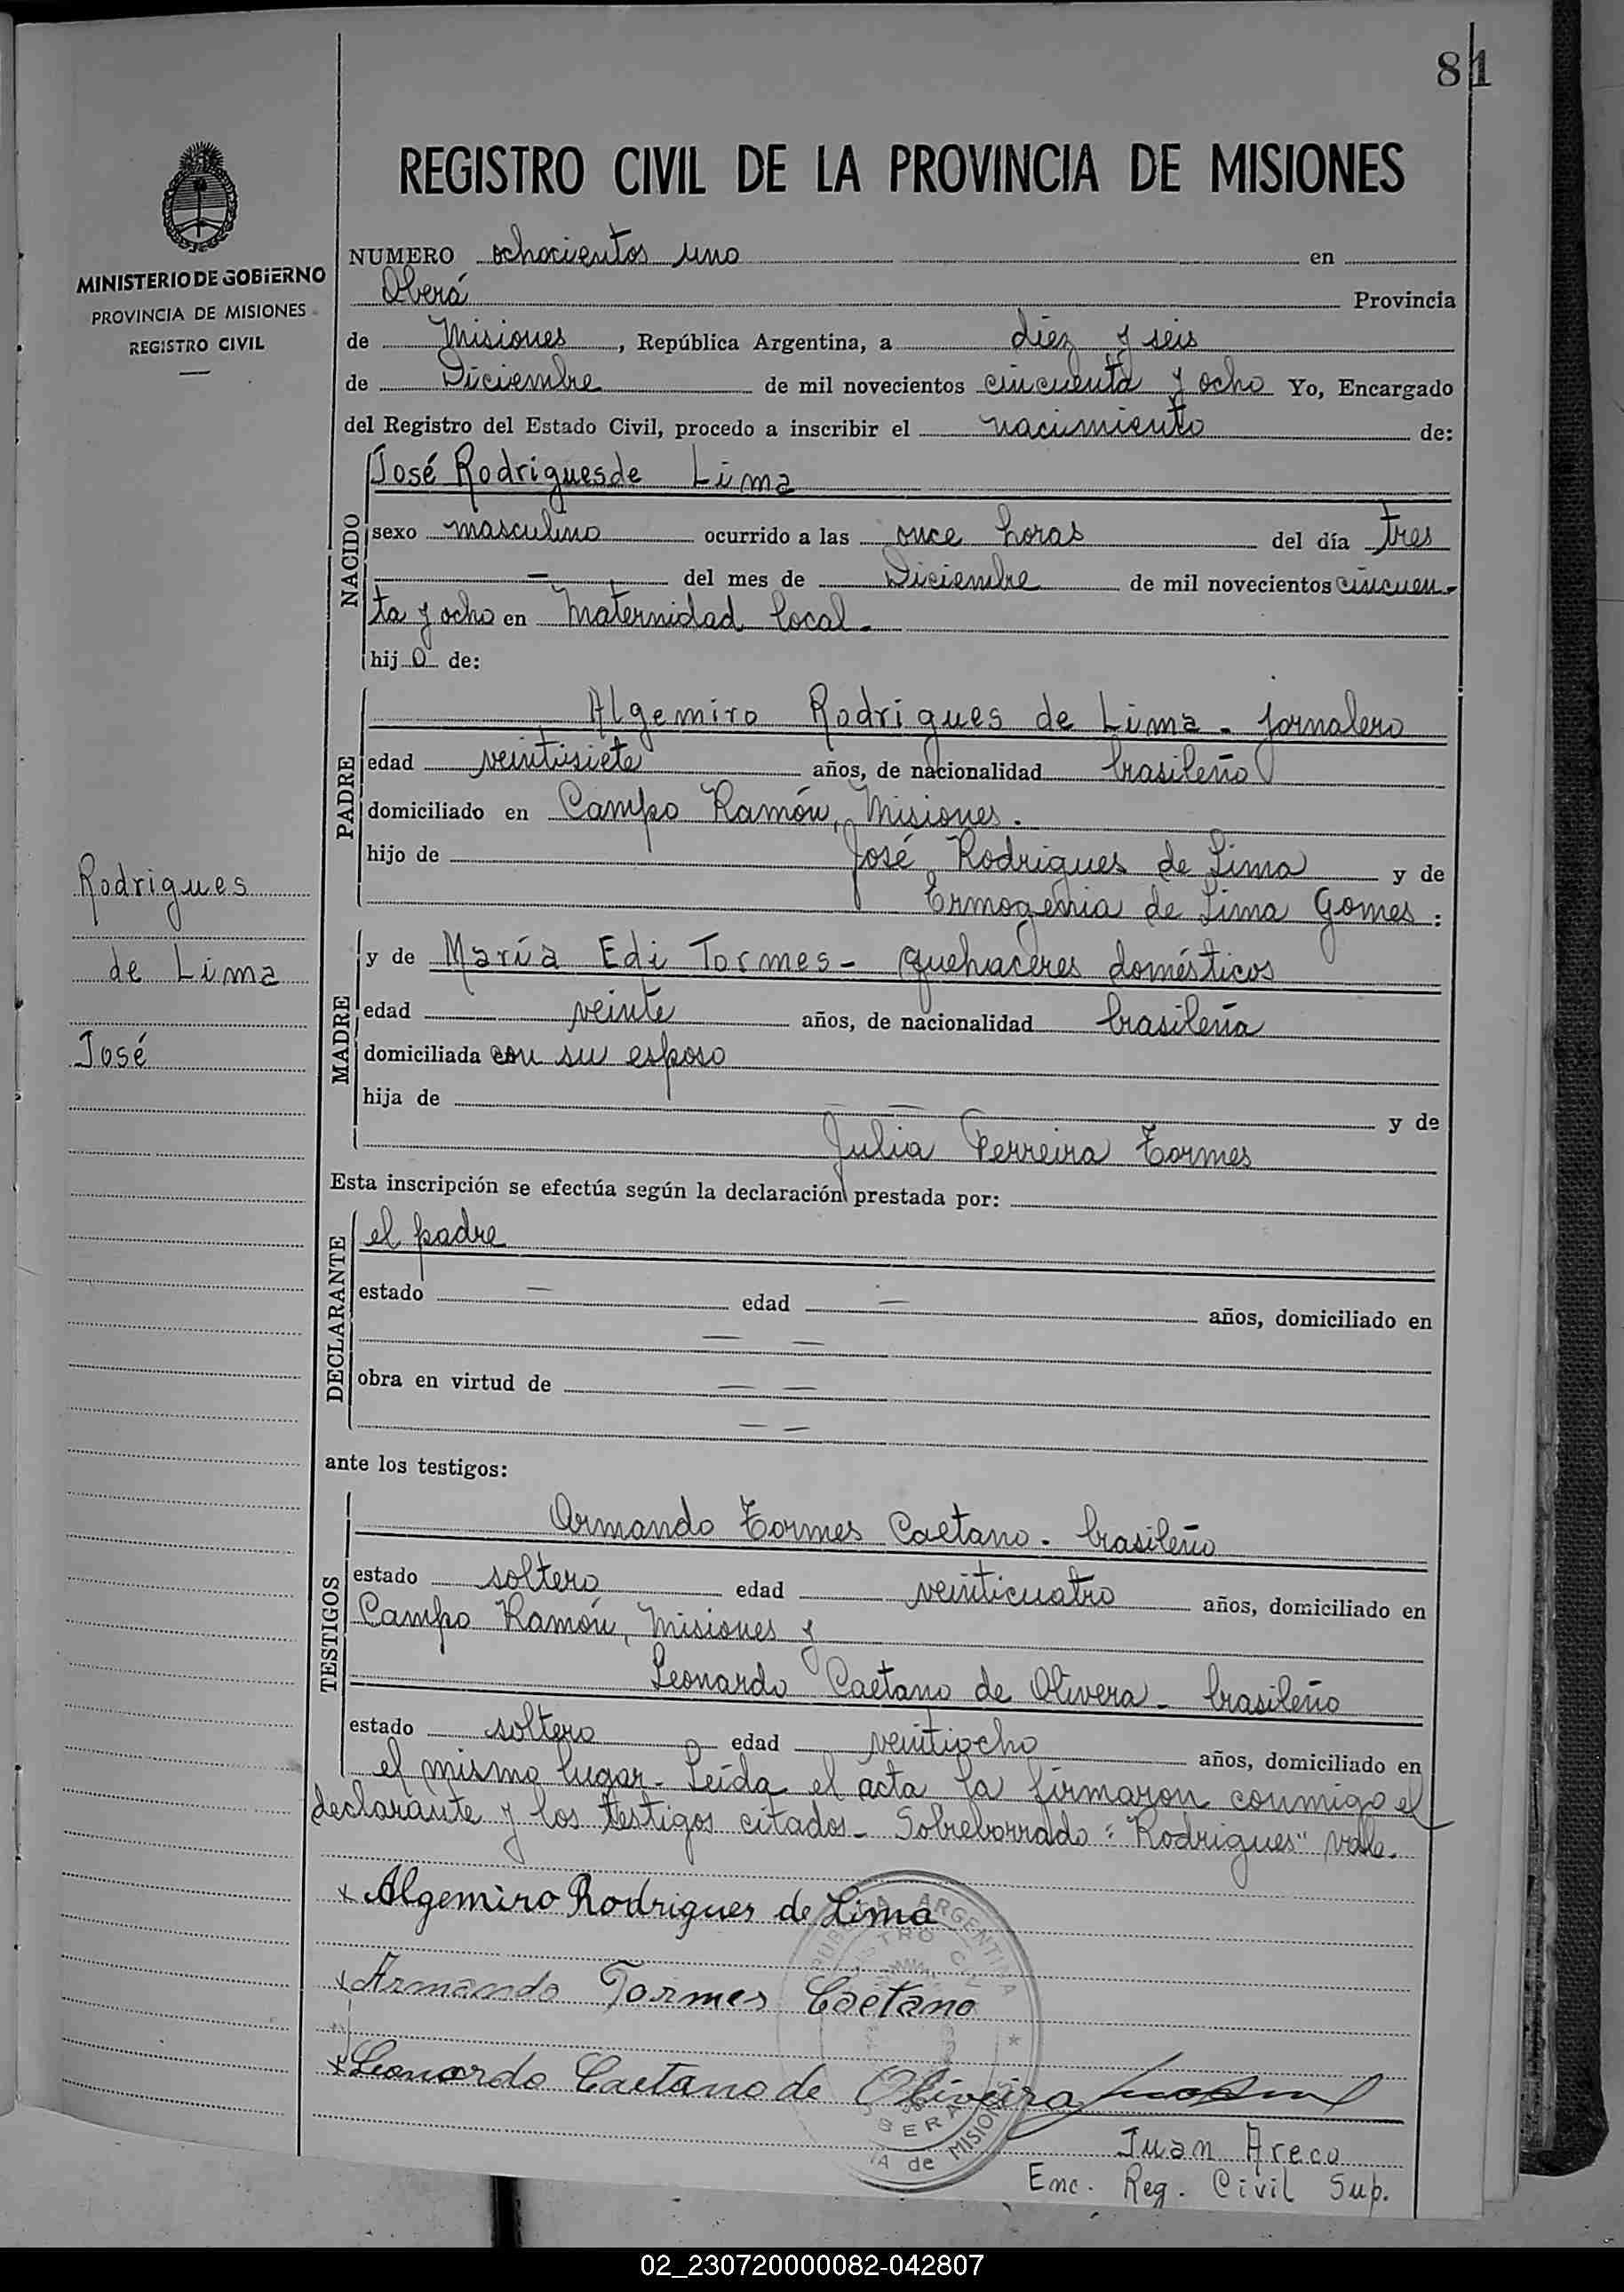 81
REGISTRO CIVIL DE LA PROVINCIA DE MISIONES
MINISTERIO DE GOBIERNO
PROVINCIA DE MISIONES
REGISTRO CIVIL
NUMERO ochocientos uno en
Oberá Provincia
de Misiones, República Argentina, a diez y seis
de Diciembre de mil novecientos cincuenta y ocho Yo, Encargado
del Registro del Estado Civil, procedo a inscribir el nacimiento de:
NACIDO
José Rodrigues de Lima
sexo masculino ocurrido a las once horas del día tres
— del mes de Diciembre de mil novecientos cincuen-
ta y ocho en Maternidad local.-
hij o de:
PADRE
Algemiro Rodrigues de Lima - jornalero
edad veintisiete años, de nacionalidad brasileño
domiciliado en Campo Ramón, Misiones.
hijo de José Rodrigues de Lima y de
Ermogenia de Lima Gomes:
Rodrigues
de Lima
José
MADRE
y de María Edi Tormes - Quehaceres domésticos
edad veinte años, de nacionalidad brasileña
domiciliada con su esposo
hija de — — y de
Julia Ferreira Tormes
Esta inscripción se efectúa según la declaración prestada por:
DECLARANTE
el padre
estado — edad — años, domiciliado en
— —
obra en virtud de — —
— —
ante los testigos:
TESTIGOS
Armando Tormes Caetano - brasileño
estado soltero edad veinticuatro años, domiciliado en
Campo Ramón, Misiones y
Leonardo Caetano de Olivera - brasileño
estado soltero edad veintiocho años, domiciliado en
el mismo lugar - Leída el acta la firmaron conmigo el
declarante y los testigos citados - Sobreborrado: "Rodrigues" vale.
x Algemiro Rodrigues de Lima
x Armando Tormes Caetano
x Leonardo Caetano de Oliveira
Juan Areco
Enc. Reg. Civil Sup.
02_230720000082-042807